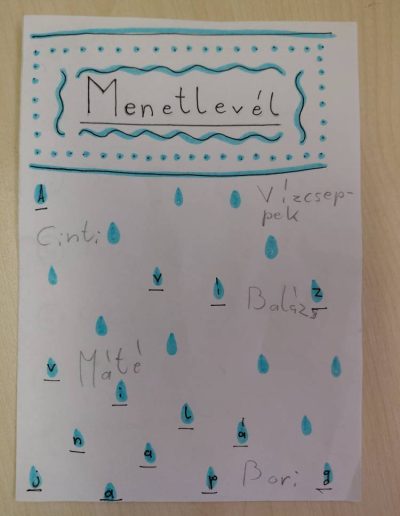 Menetlevél
A
Vízcsep-
pek
Cinti
v í z
Balázs
v
Máté
i
l
n a á
j a p g
Bori